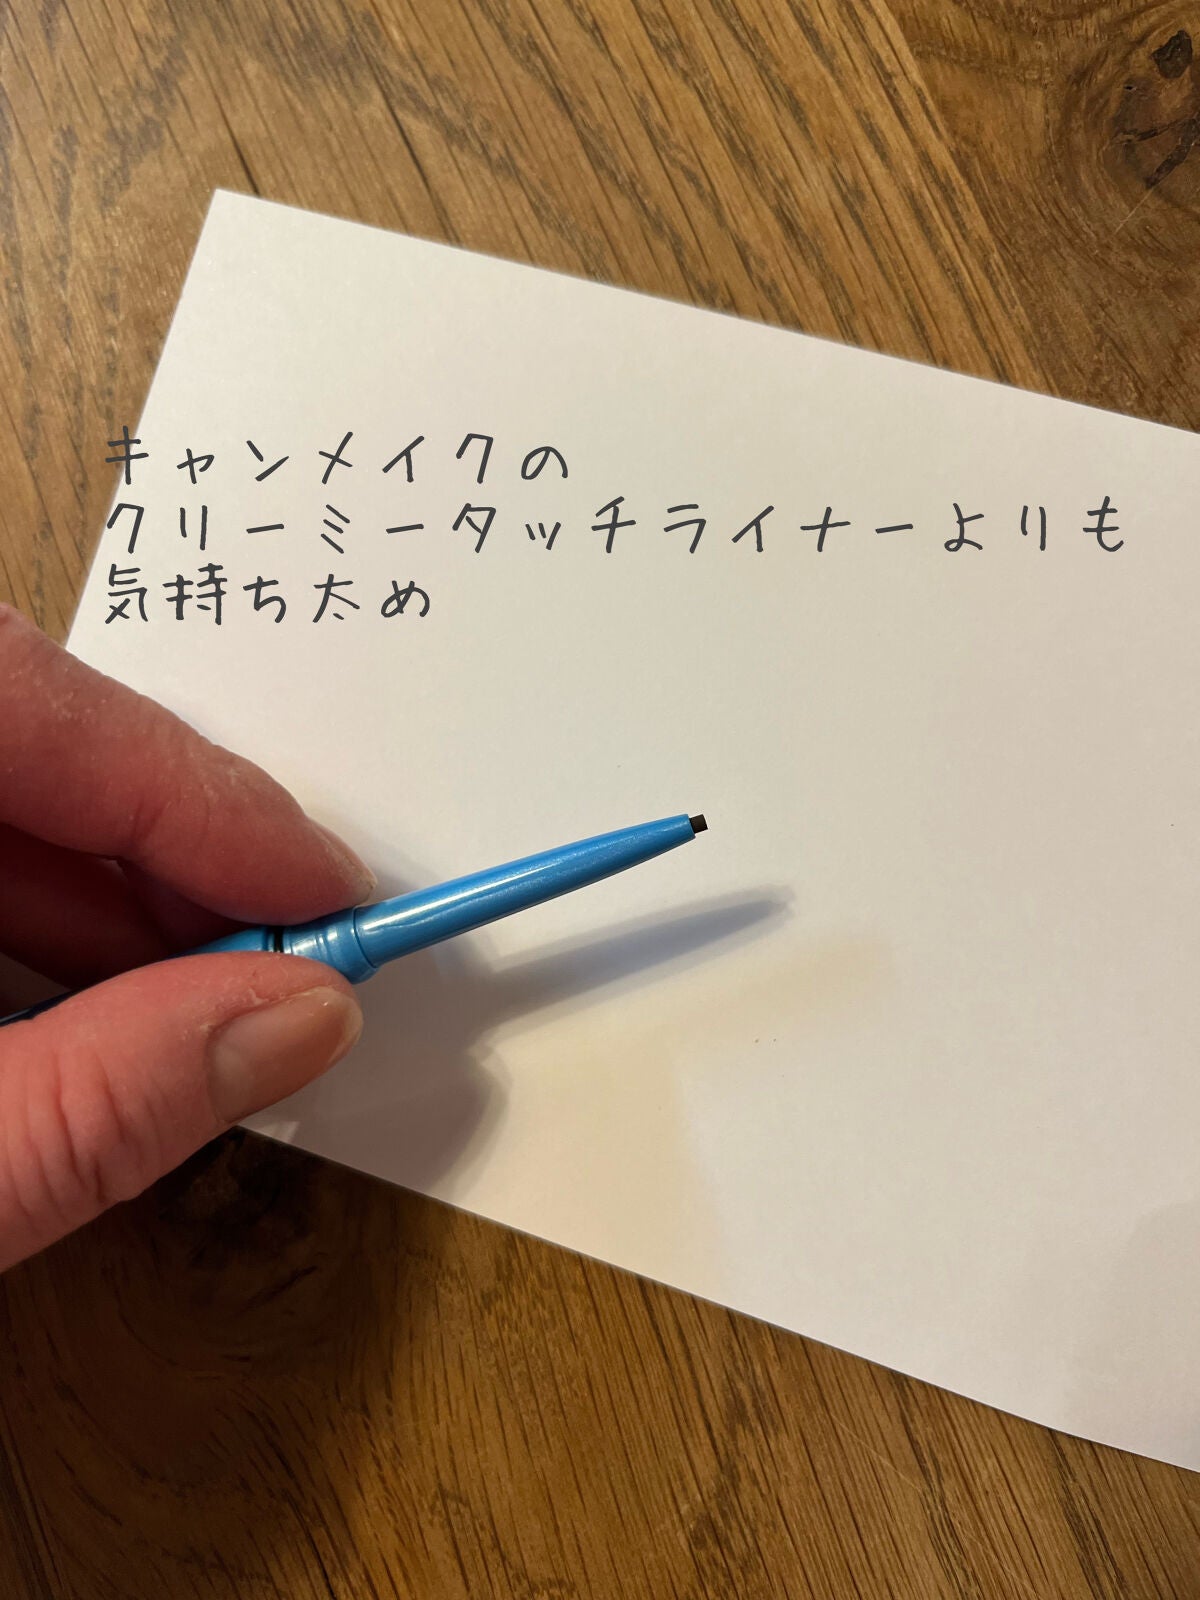 キャンメイクの
クリーミータッチライナーよりも
気持ち太め